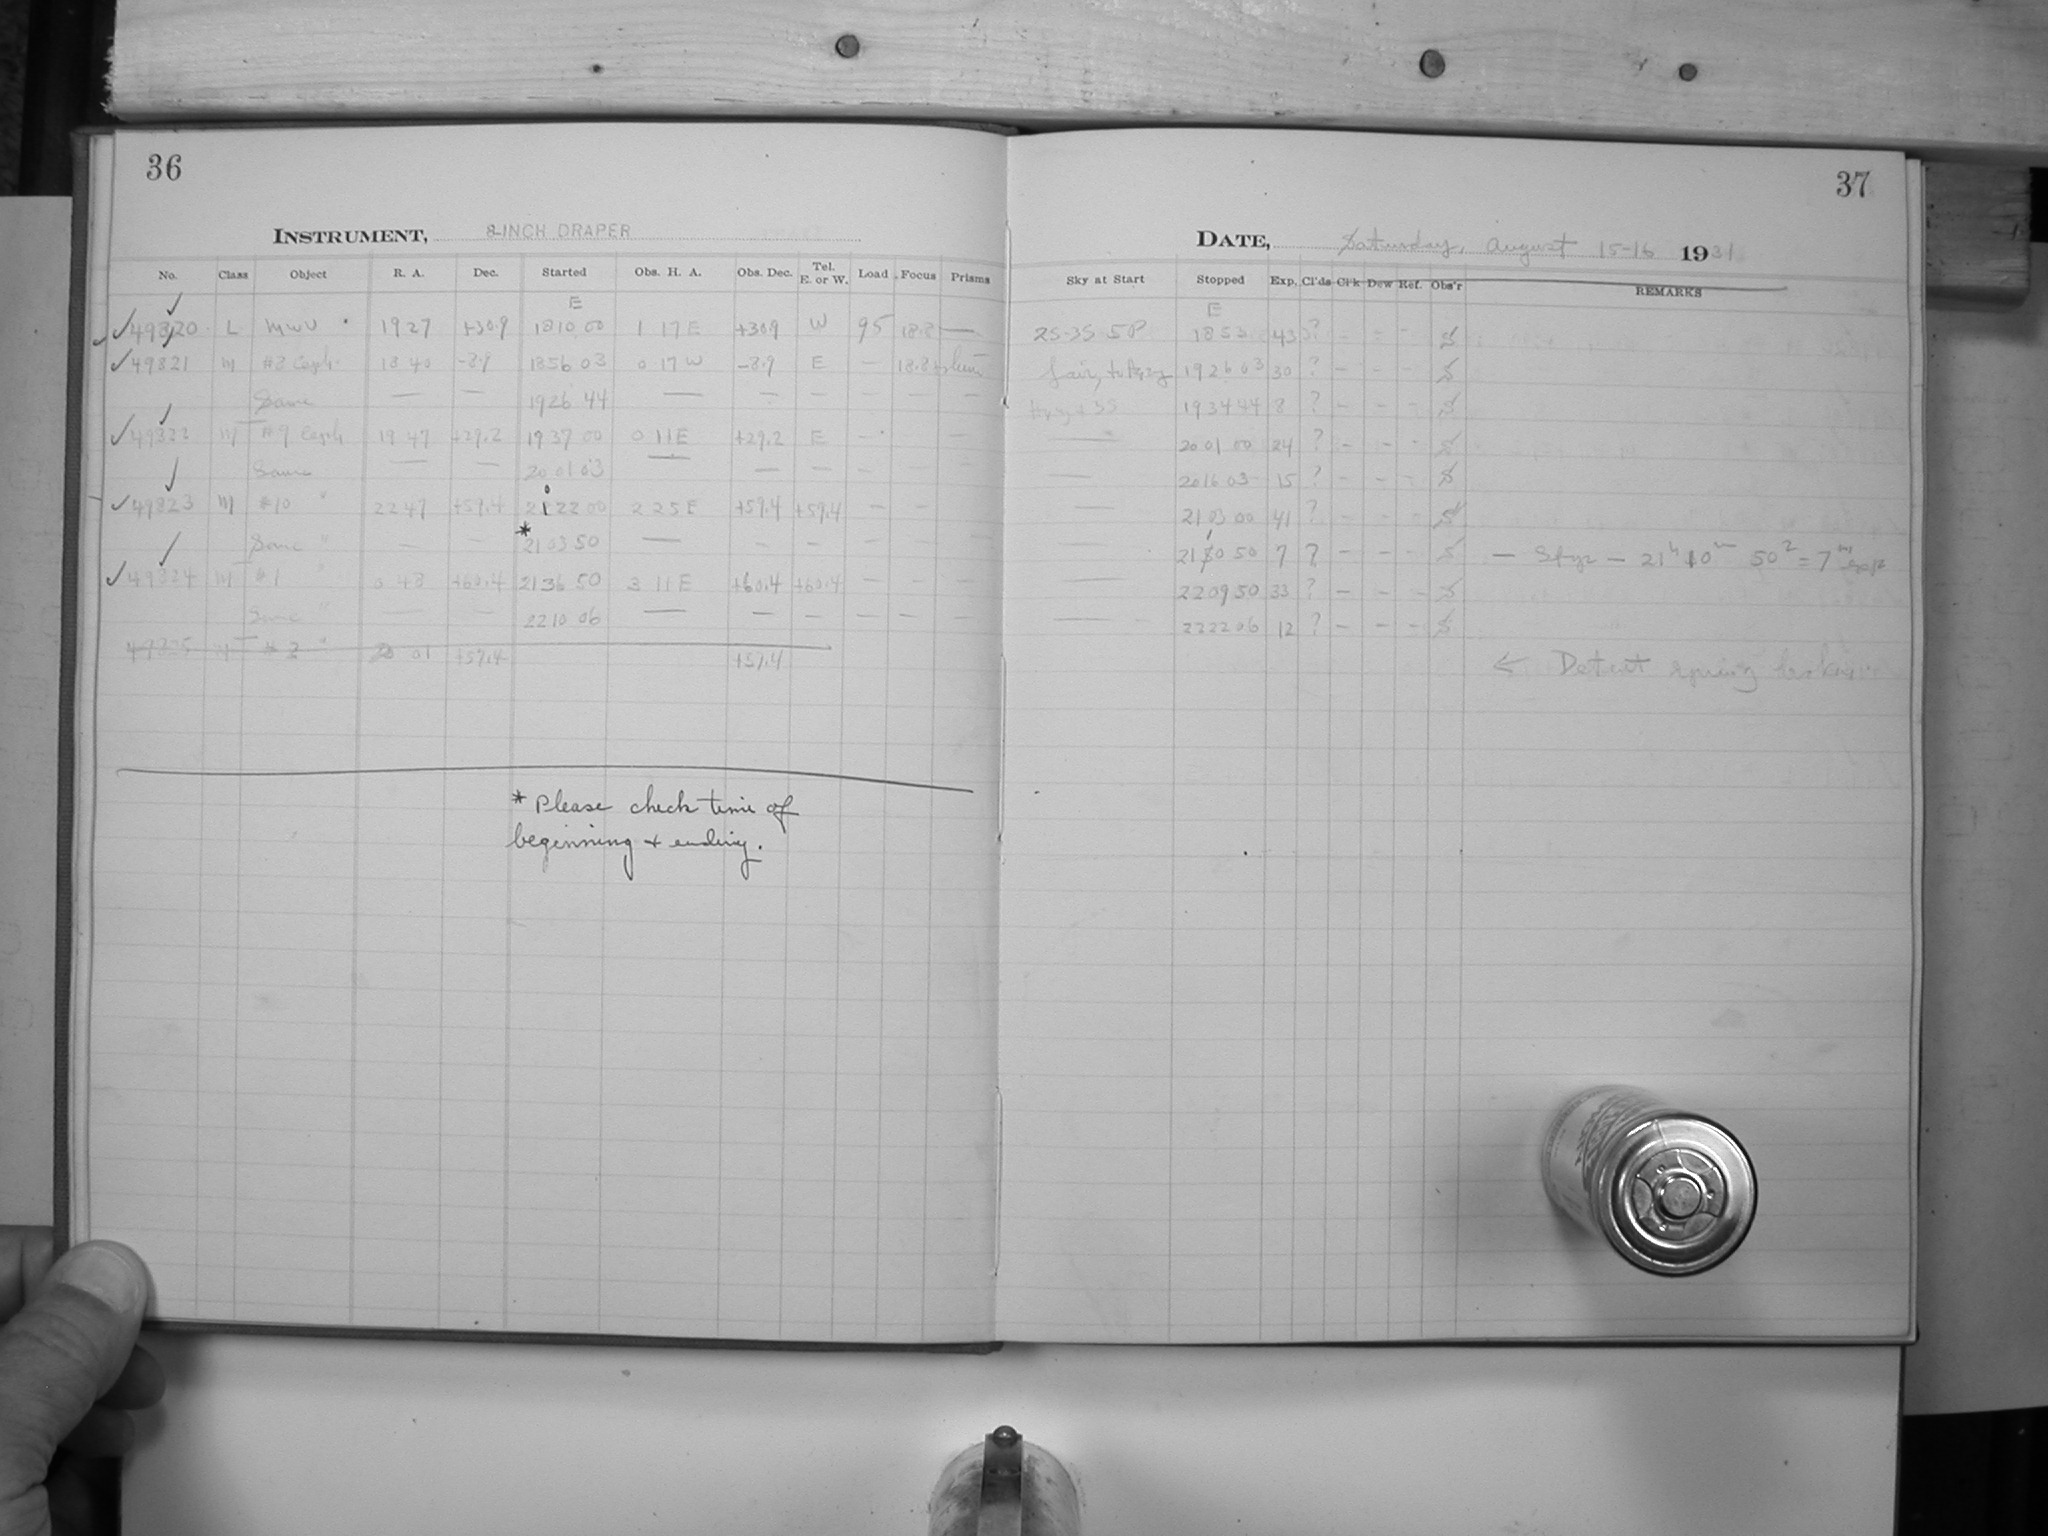 36
INSTRUMENT, 8-INCH DRAPER
No. Class Object R. A. Dec. Started Obs. H. A. Obs. Dec. Tel. E. or W. Load Focus Prisms
E
49320 L MWU 19 27 +30.9 18 10 00 1 17 E +30.9 W 95 18.8 —
49321 M #8 Ceph. 18 40 -8.9 18 56 03 0 17 W -8.9 E — 18.8
Same — — 19 26 44 — — — — — —
49322 M #9 Ceph 19 47 +29.2 19 37 00 0 11 E +29.2 E — —
Same — — 20 01 03 — — — — — —
49323 M #10 " 22 47 +59.4 2 22 00 2 25 E +59.4 +59.4 — — —
Same " — — * 21 03 50 — — — — — —
49324 M #1 " 0 48 +60.4 21 36 50 3 11 E +60.4 +60.4 — — —
Same " — — 22 10 06 — — — — — —
49325 M # 2 " 01 +57.4 +57.4
* Please check time of
beginning + ending.
37
DATE, Saturday, August 15-16 1931
Sky at Start Stopped Exp. Cl'ds Cl'k Dew Ref. Obs'r REMARKS
E
2S-3S 5P 18 53 43 ? - - - S
fair, 19 26 03 30 ? - - - S
19 34 44 8 ? - - - S
— 20 01 00 24 ? - - - S
— 20 16 03 15 ? - - - S
— 21 03 00 41 ? - - - S
21 10 50 7 ? - - - S — — 21h 10m 50s = 7m
22 09 50 33 ? - - - S
— 22 22 06 12 ? - - - S
← Detent spring broken